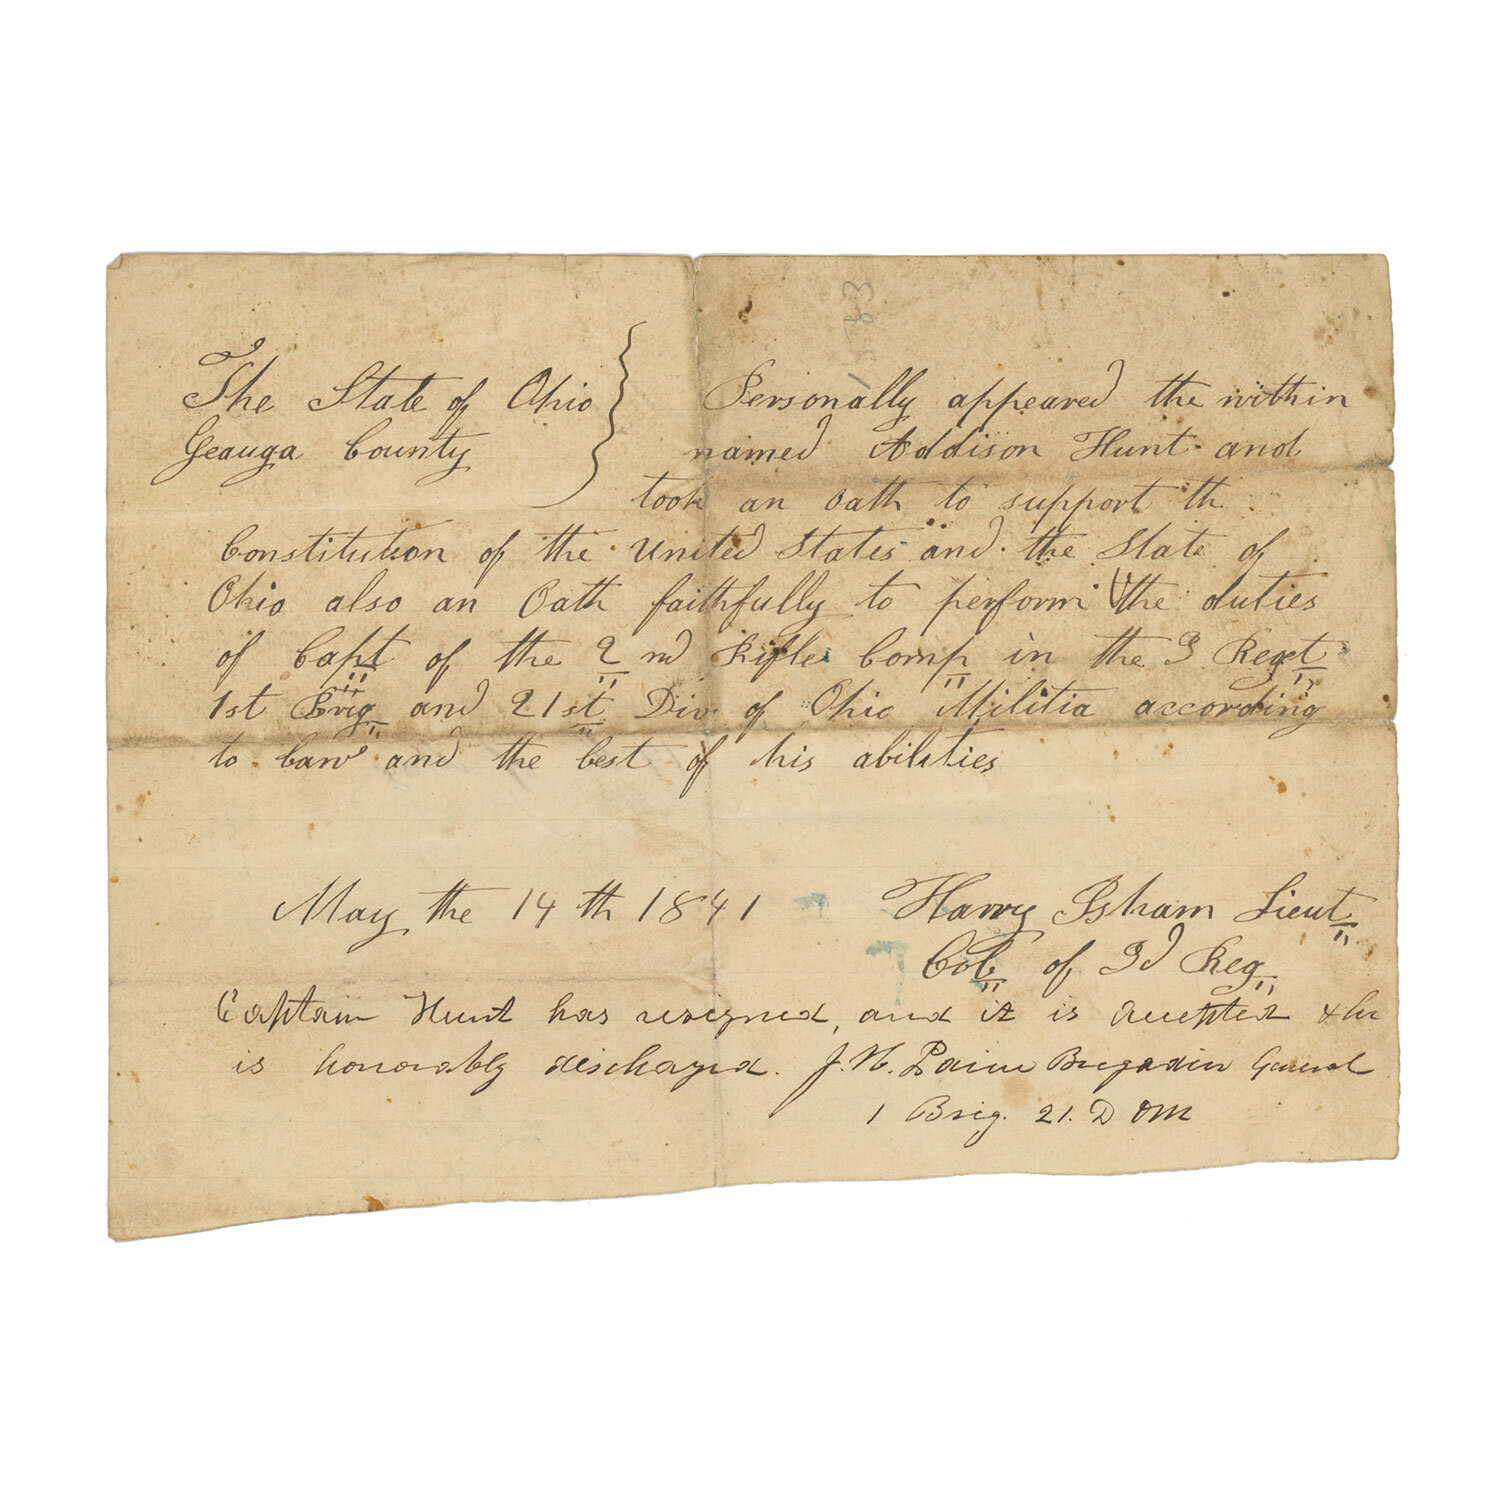 The State of Ohio
Geauga County
Personally appeared the within
named Addison Hunt and
took an oath to support th
Constitution of the United States and the State of
Ohio also an Oath faithfully to perform the duties
of Capt of the 2 nd Rifle Comp in the 3 Regt
1st Brig and 21st Div of Ohio Militia according
to Law and the best of his abilities
May the 14 th 1841
Harry Isham Lieut
Col of 3d Reg
Captain Hunt has resigned, and it is accepted & he
is honorably discharged. J. H. Paine Brigadier General
1 Brig. 21. D OM